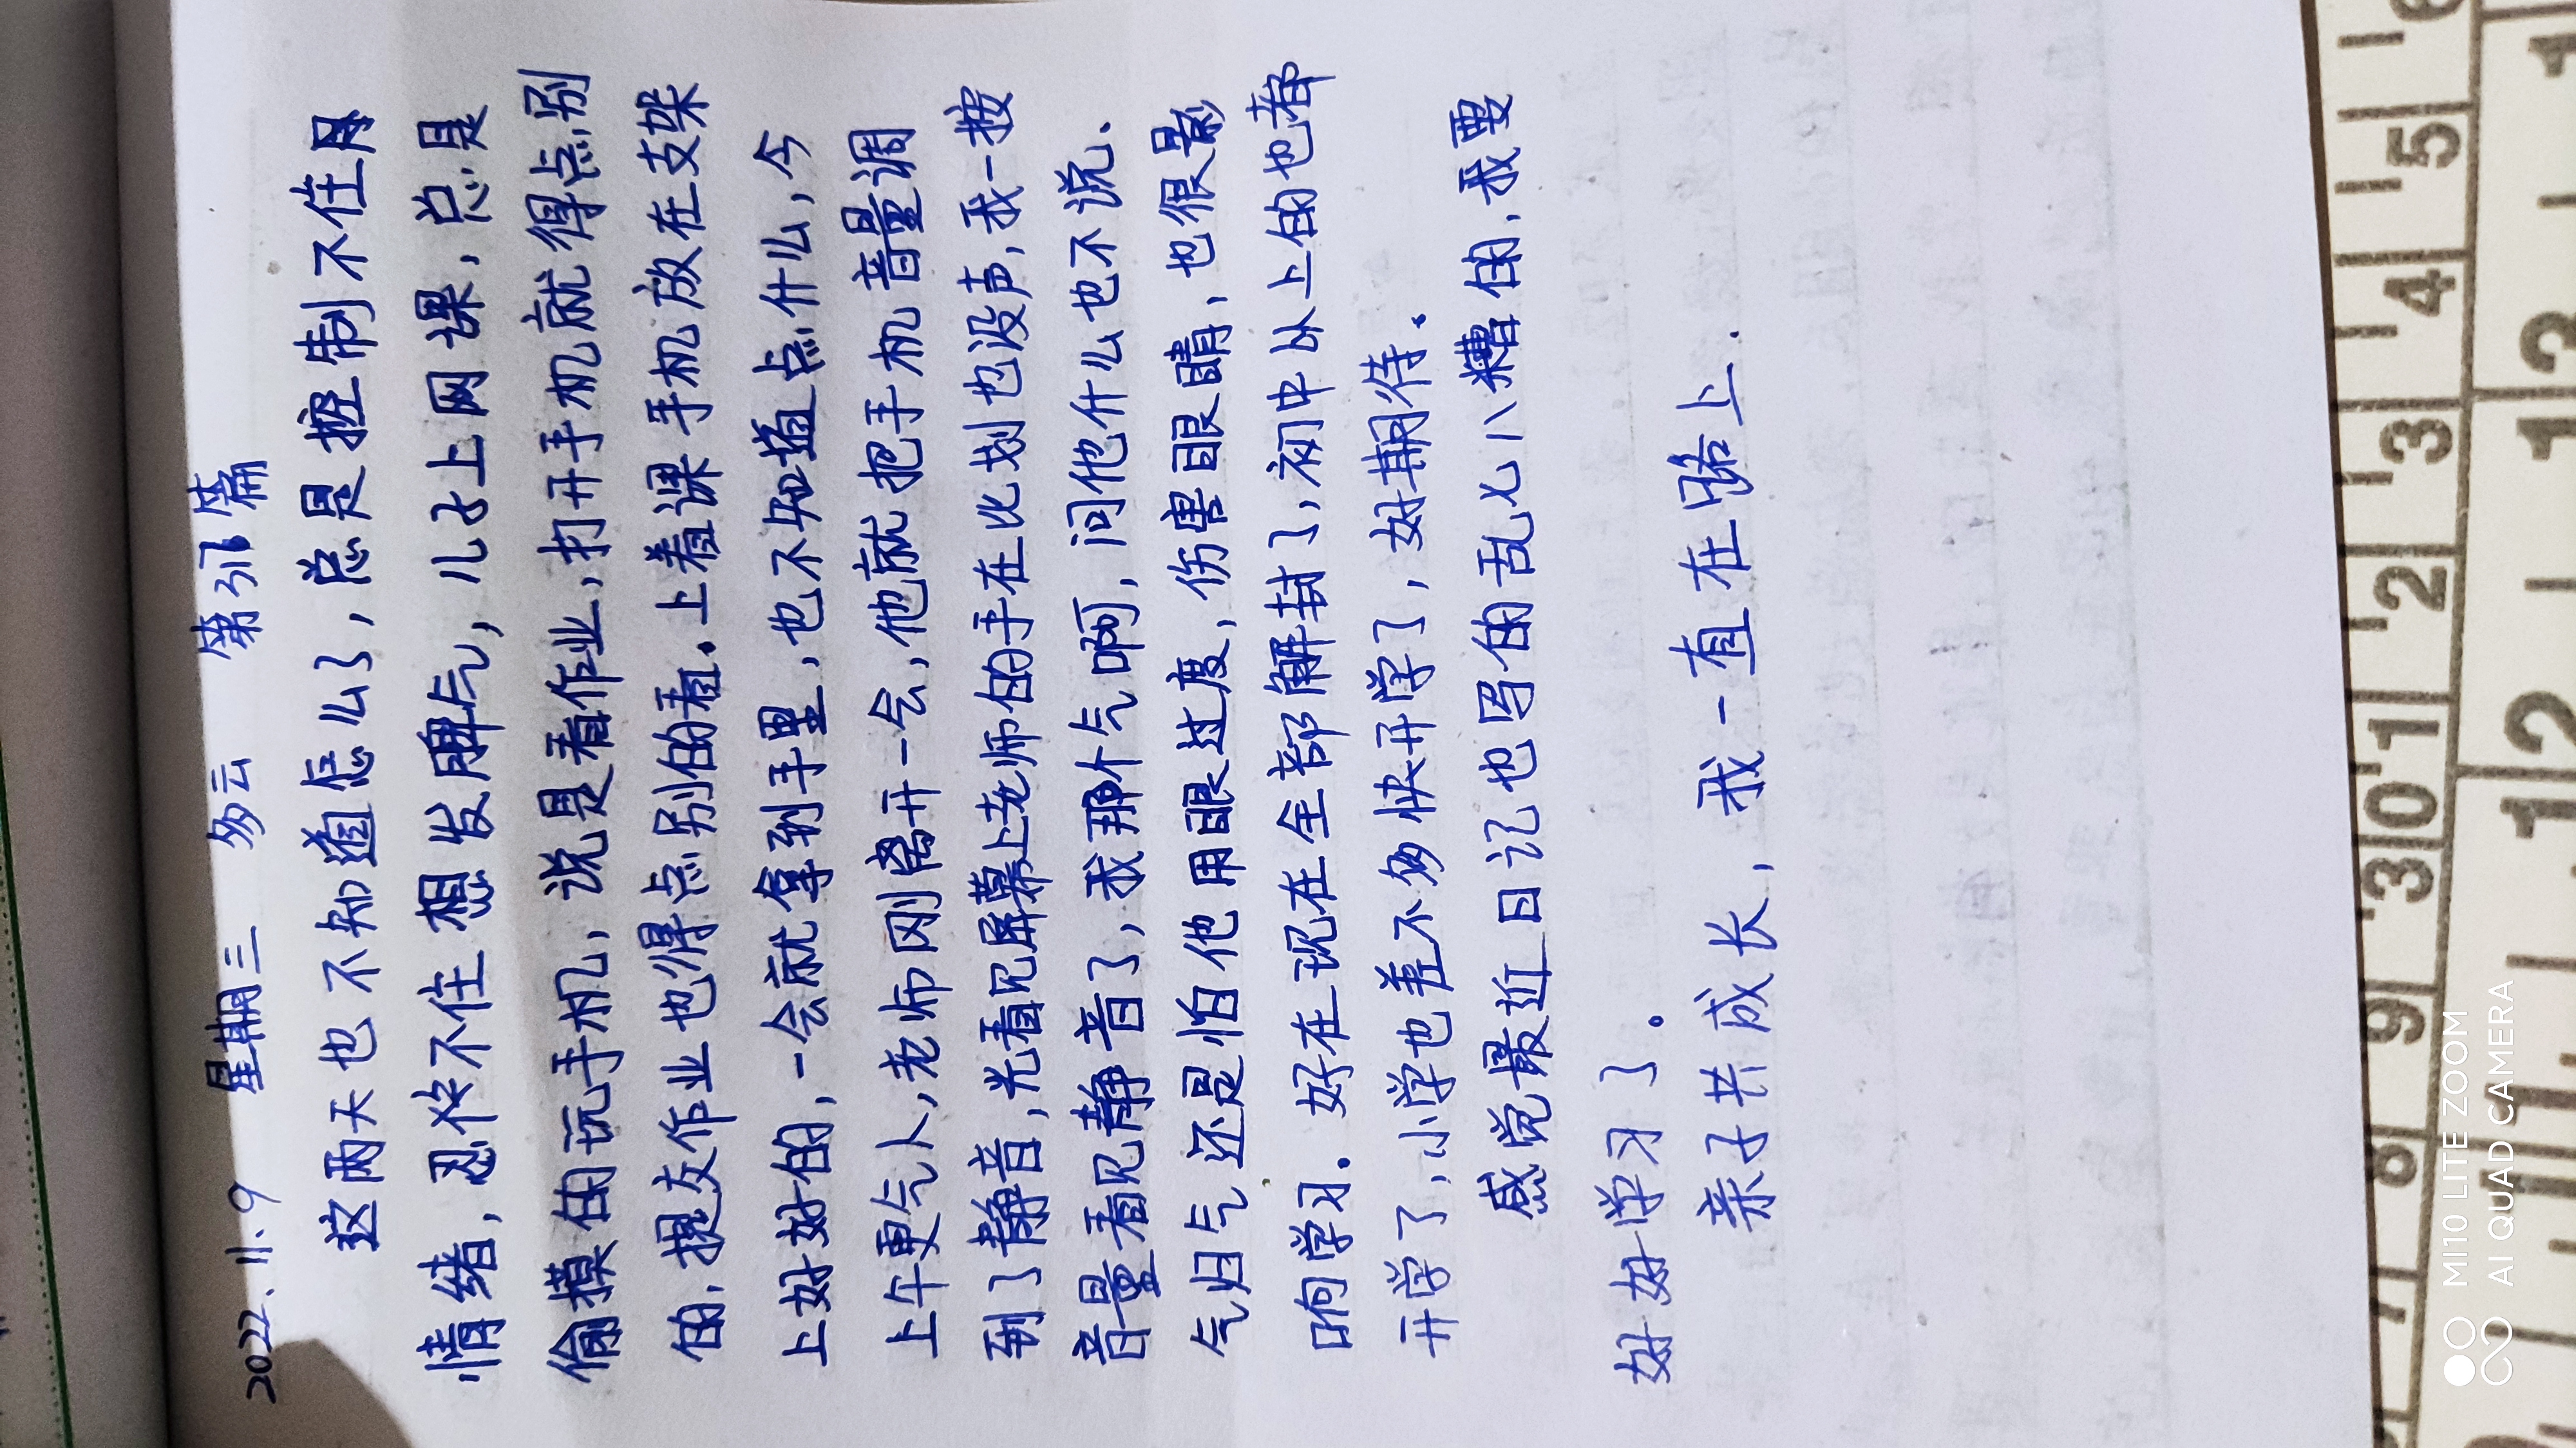 2022.11.9 星期三 多云 第316篇
这两天也不知道怎么了，总是控制不住
情绪，忍不住想发脾气，儿子上网课，总是
偷摸的玩手机，说是看作业，打开手机就得点别
的，提交作业也得点别的看。上着课手机放在支架
上好好的，一会就拿到手里，也不知道点什么，今
上午更气人，老师刚离开一会，他就把手机音量调
到了静音，光看见屏幕上老师的手在比划也没声，我一按
音量看见静音了，我那个气啊，问他什么也不说。
气归气还是怕他用眼过度，伤害眼睛，也很影
响学习。好在现在全部解封了，初中以上的也都
开学了，小学也差不多快开学了，好期待。
感觉最近日记也写的乱七八糟的，我要
好好学习了。
亲子共成长，我一直在路上．
MI 10 LITE ZOOM
AI QUAD CAMERA
5 4 3 2 1 30 9 8 7